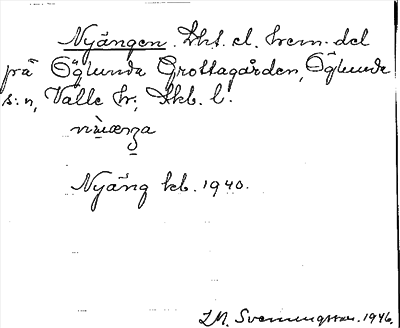 Nyängen. Lht. el. hem. del
på Öglunda Grottagården, Öglunda
s:n, Valle hr; Skb. l.
Nyäng kb. 1940.
I.M. Svenningsson. 1946.